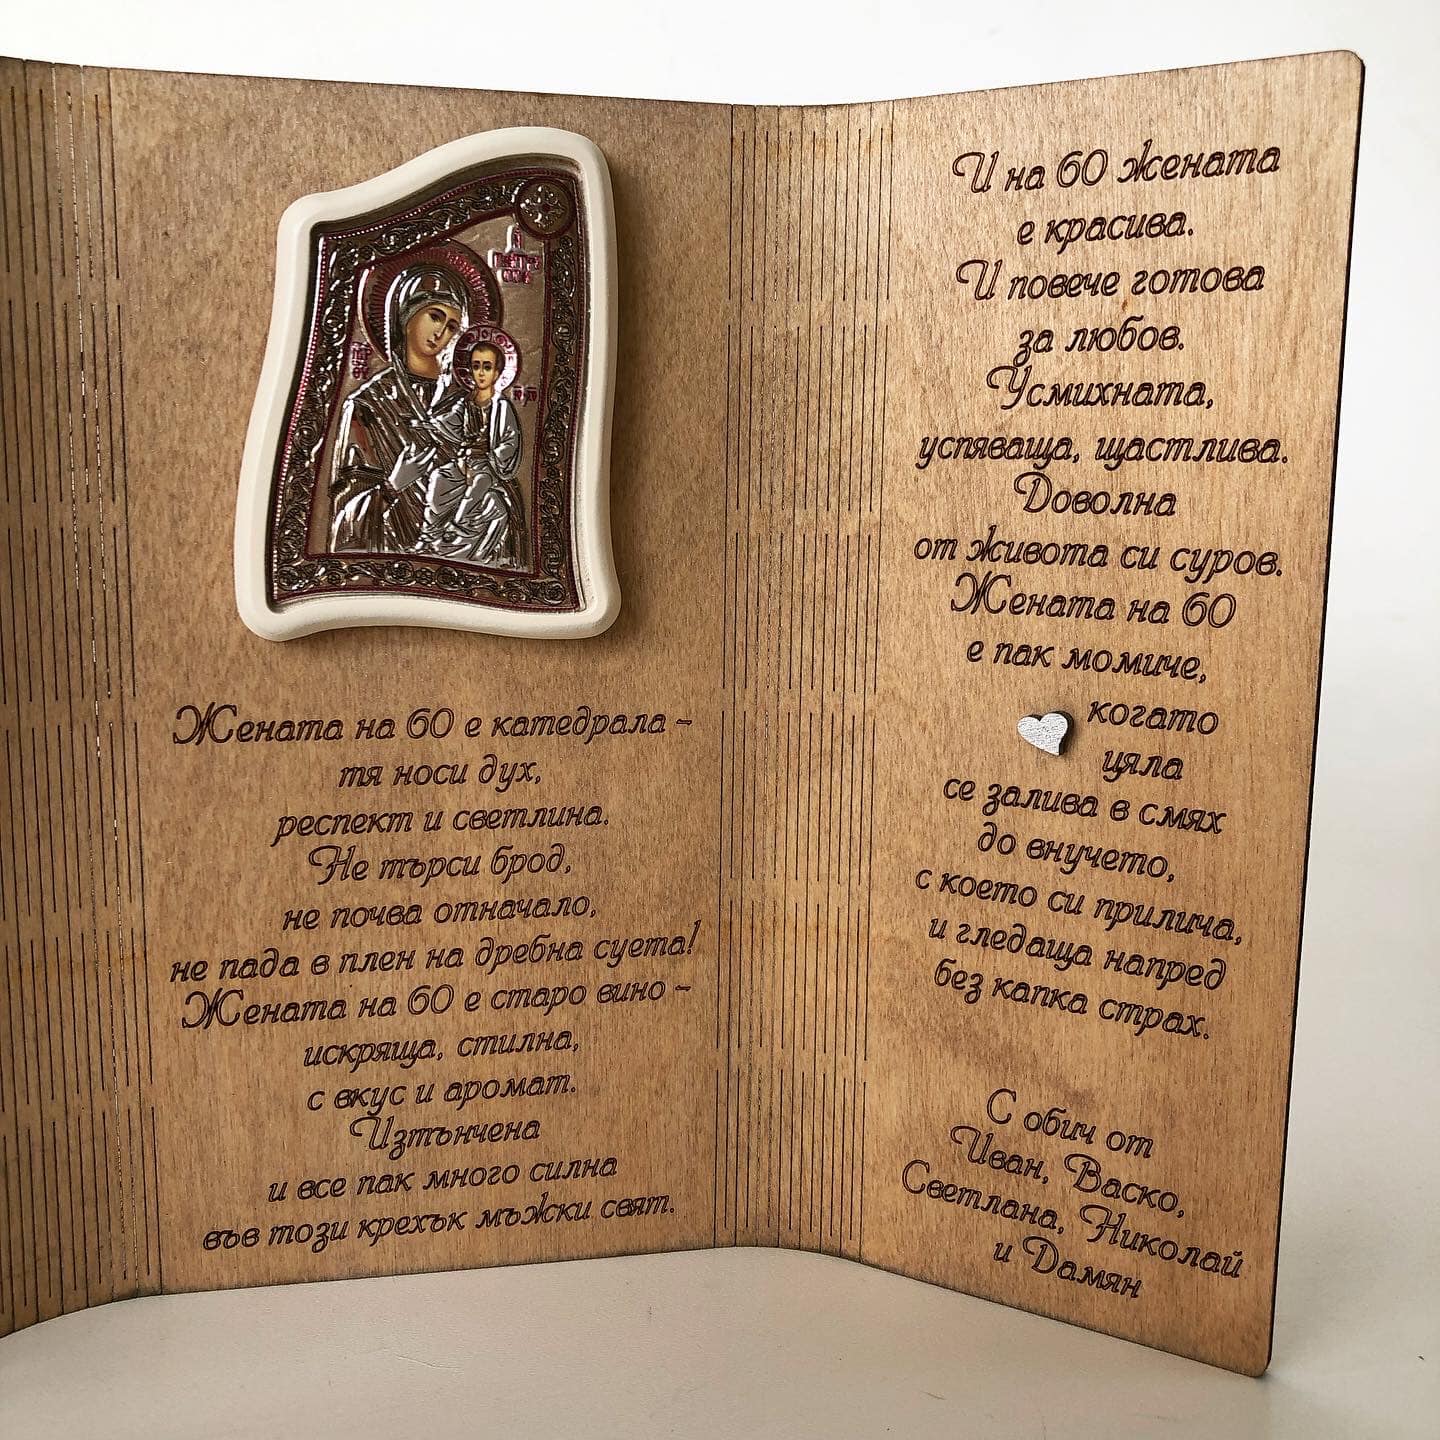 Жената на 60 е катедрала –
тя носи дух,
респект и светлина.
Не търси брод,
не почва отначало,
не пада в плен на дребна суета!
Жената на 60 е старо вино –
искряща, стилна,
с вкус и аромат.
Изтънчена
и все пак много силна
във този крехък мъжки свят.
И на 60 жената
е красива.
И повече готова
за любов.
Усмихната,
успяваща, щастлива.
Доволна
от живота си суров.
Жената на 60
е пак момиче,
когато
цяла
се залива в смях
до внучето,
с което си прилича,
и гледаща напред
без капка страх.
С обич от
Иван, Васко,
Светлана, Николай
и Дамян